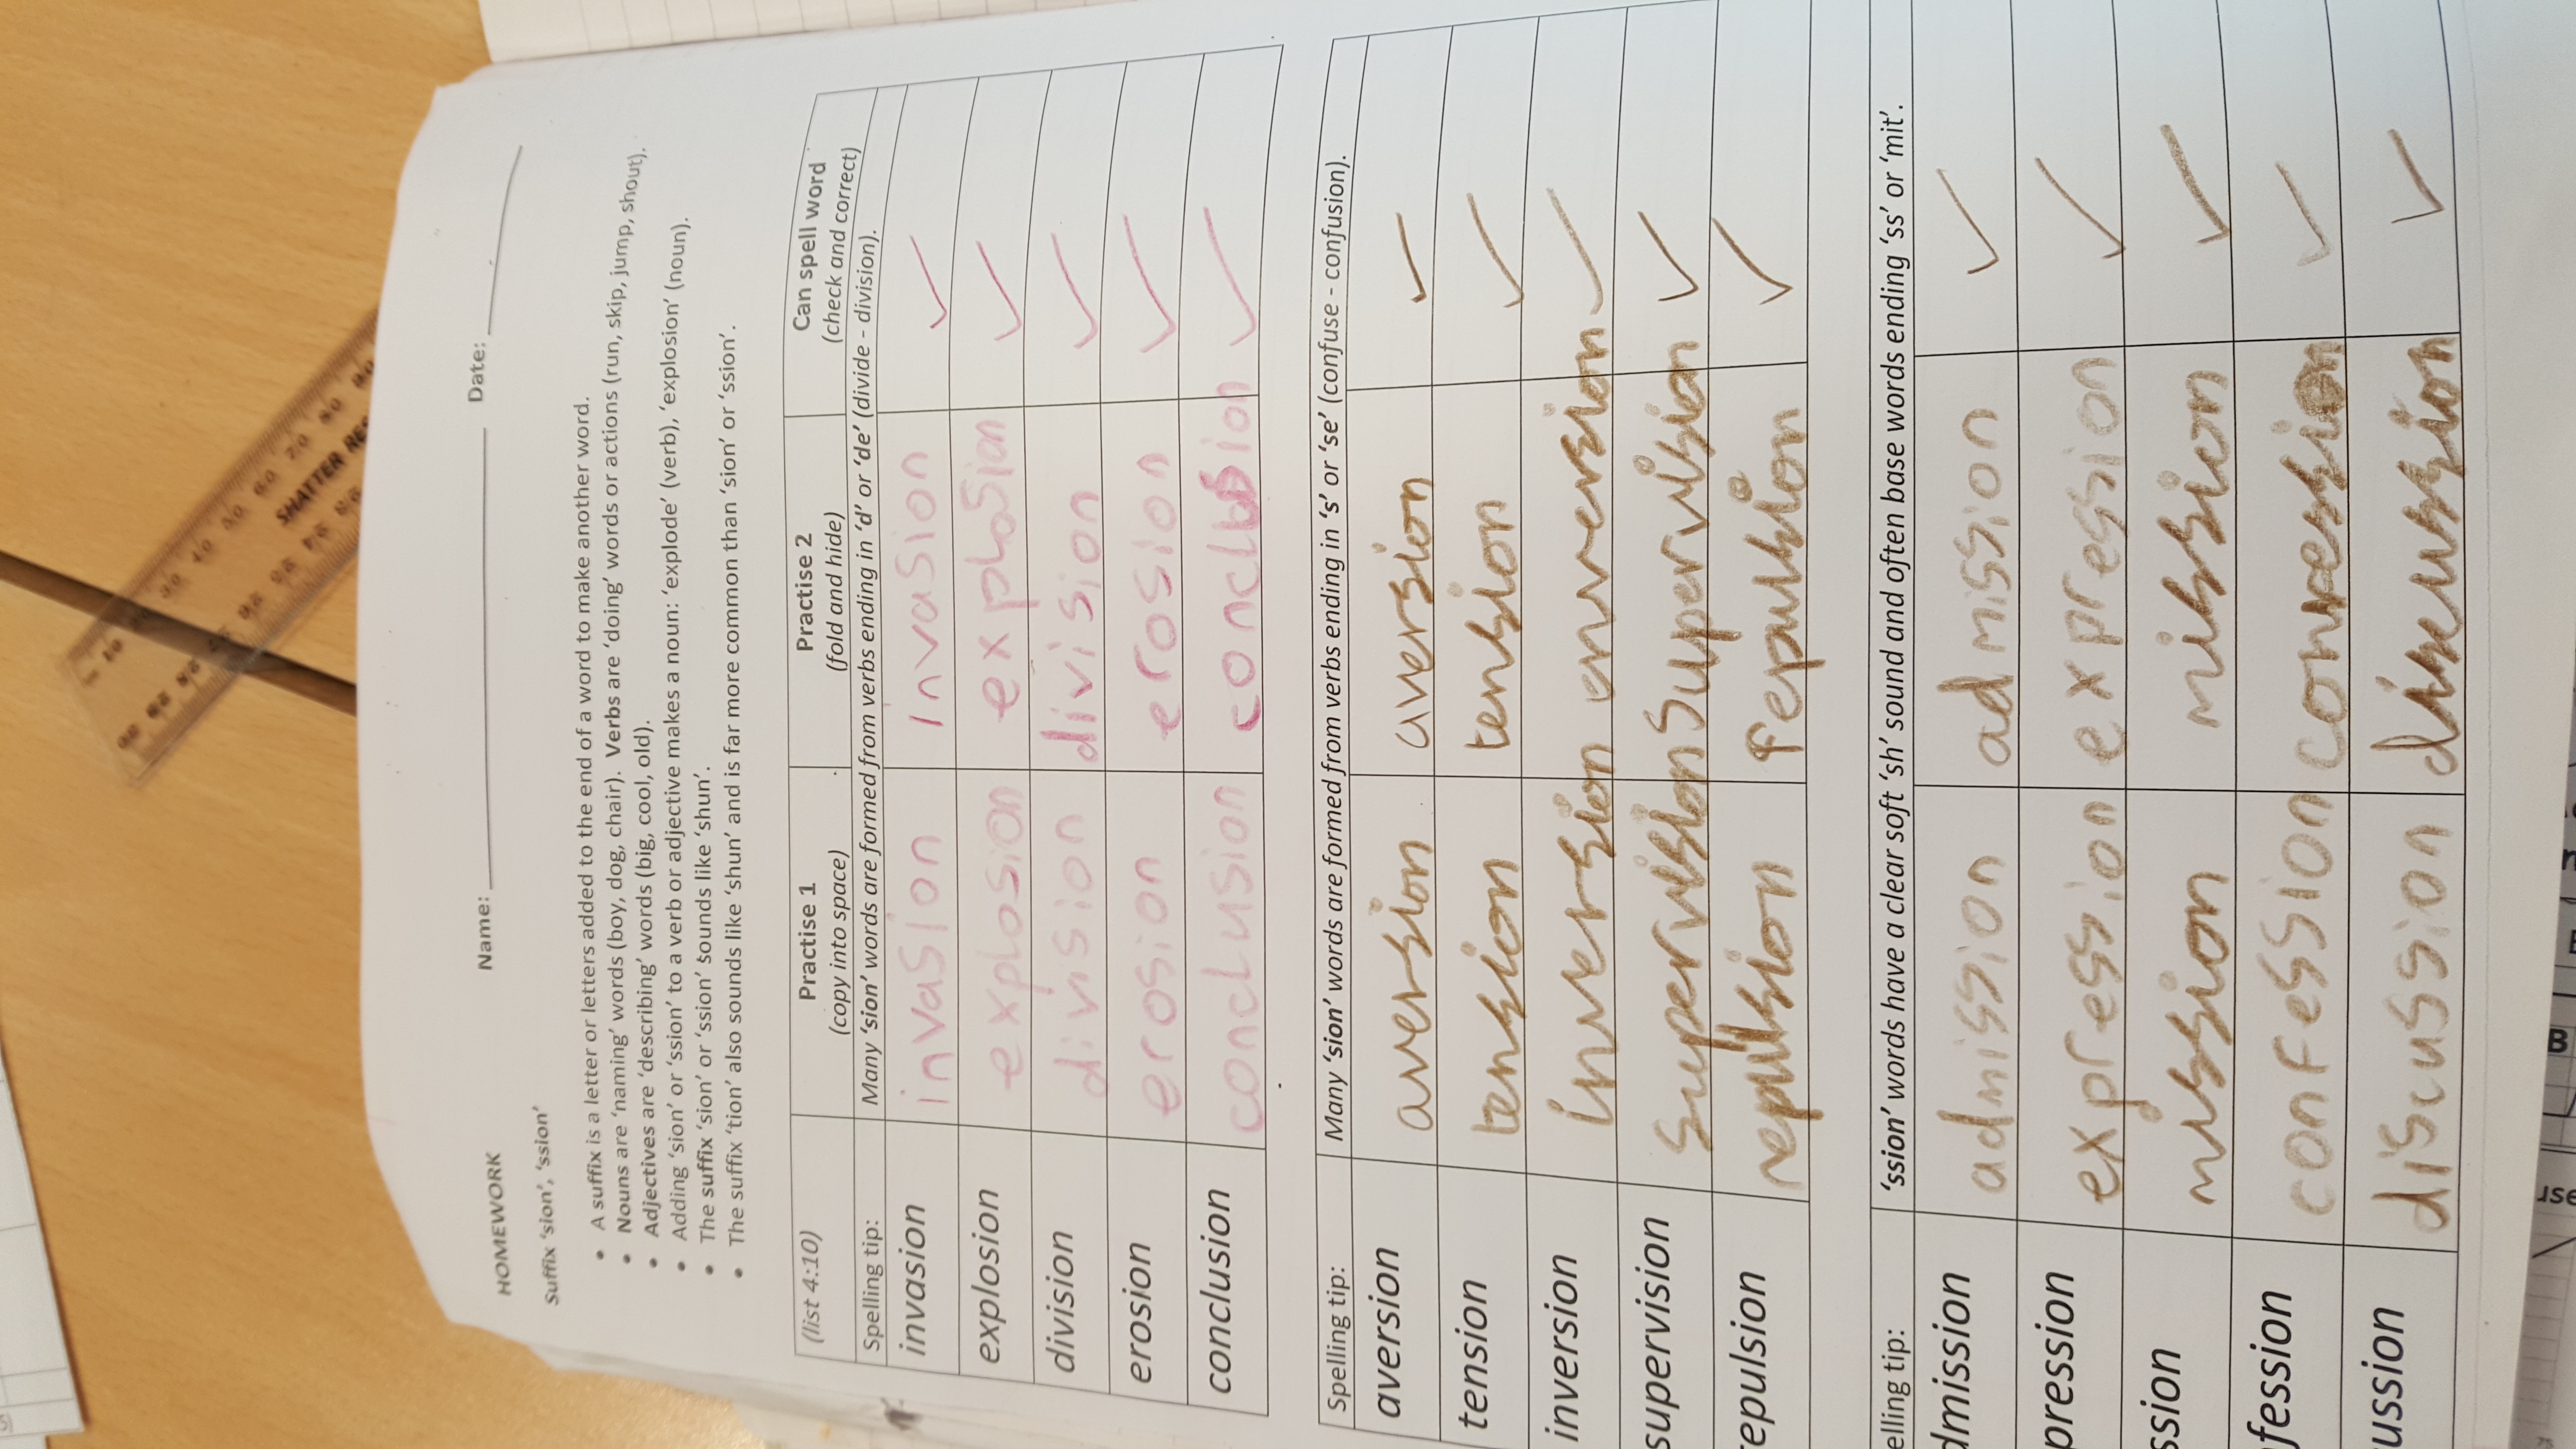 HOMEWORK Name: Date:
Suffix 'sion', 'ssion'
• A suffix is a letter or letters added to the end of a word to make another word.
• Nouns are 'naming' words (boy, dog, chair). Verbs are 'doing' words or actions (run, skip, jump, shout).
• Adjectives are 'describing' words (big, cool, old).
• Adding 'sion' or 'ssion' to a verb or adjective makes a noun: 'explode' (verb), 'explosion' (noun).
• The suffix 'sion' or 'ssion' sounds like 'shun'.
• The suffix 'tion' also sounds like 'shun' and is far more common than 'sion' or 'ssion'.
(list 4:10) Practise 1 Practise 2 Can spell word
(copy into space) (fold and hide) (check and correct)
Spelling tip: Many 'sion' words are formed from verbs ending in 'd' or 'de' (divide - division).
invasion invasion invasion ✓
explosion explosion explosion ✓
division division division ✓
erosion erosion erosion ✓
conclusion conclusion conclusion ✓
Spelling tip: Many 'sion' words are formed from verbs ending in 's' or 'se' (confuse - confusion).
aversion aversion aversion ✓
tension tension tension ✓
inversion inversion enversion ✓
supervision Supervision Supervision ✓
repulsion repulsion repulsion ✓
elling tip: 'ssion' words have a clear soft 'sh' sound and often base words ending 'ss' or 'mit'.
dmission admission admission ✓
pression expression expression ✓
ssion mission mission ✓
fession confession ✓
ussion discussion discussion ✓
SHATTER RES
B
use